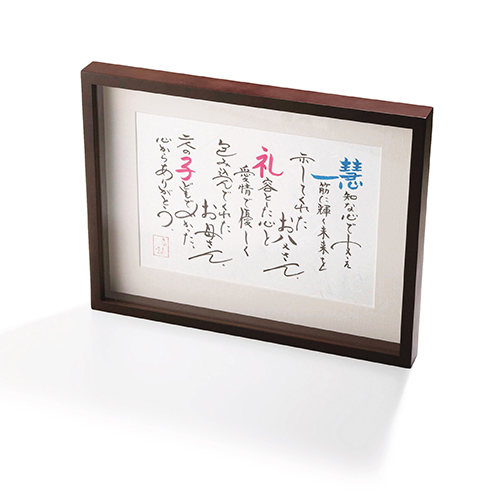 慧知な心で支え
一筋に輝く未来を
示してくれた
お父さん。
礼容とした心と
愛情で優しく
包み込んでくれた
お母さん。
二人の子どもでよかった。
心からありがとう。